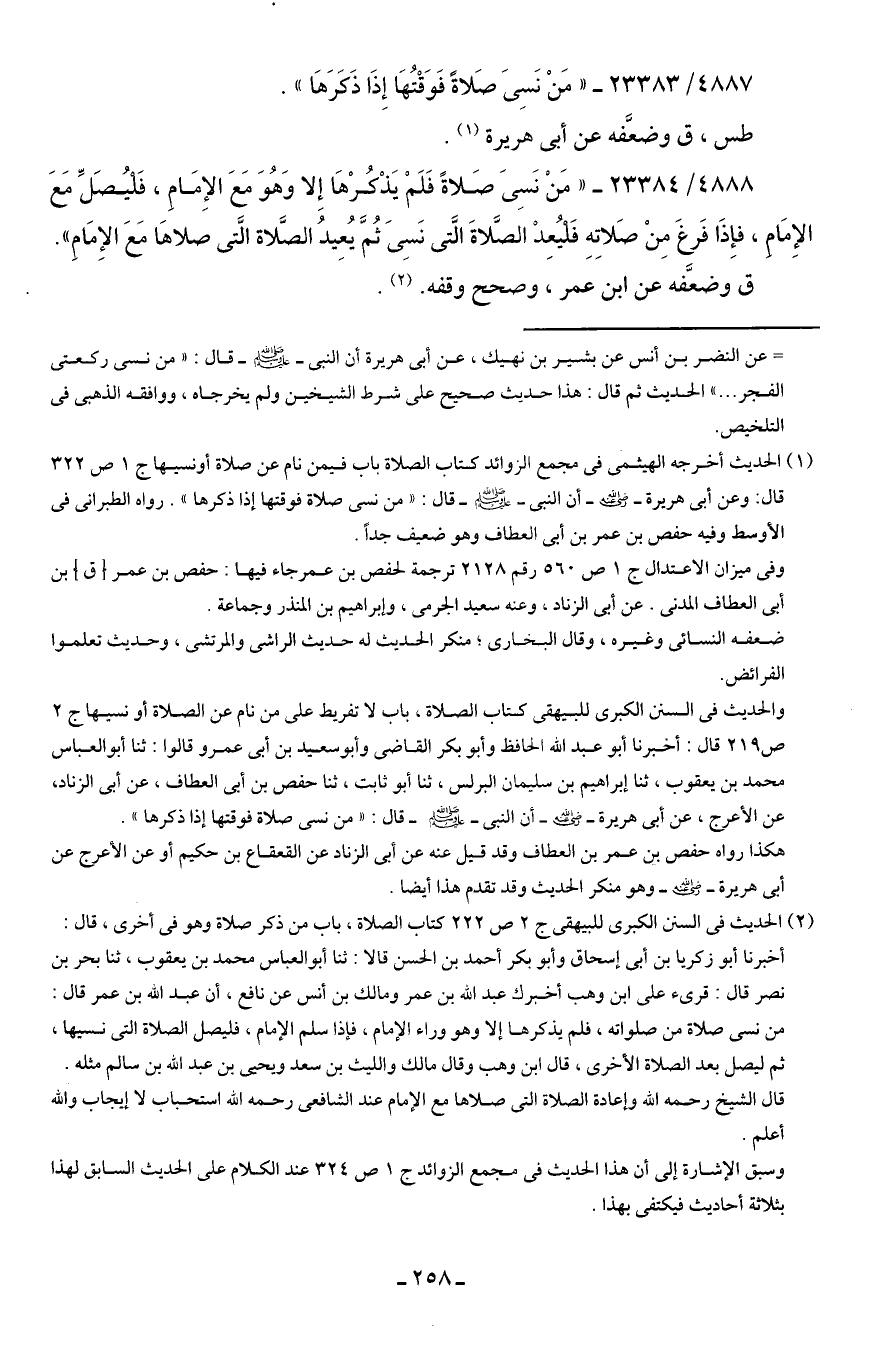 ٤٨٨٧/ ٢٣٣٨٣ ـ « مَنْ نَسِىَ صَلاَةً فَوَقْتُهَا إِذَا ذَكَرَهَا » .
طس ، ق وضعَّفه عن أبى هريرة (١) .
٤٨٨٨/ ٢٣٣٨٤ ـ « مَنْ نَسِىَ صَلاةً فَلَمْ يَذْكُرْهَا إِلا وَهُوَ مَعَ الإِمَامِ ، فَلْيُصَلِّ مَعَ
الإِمَامِ ، فَإِذَا فَرِغَ مِنْ صَلاتِهِ فَلْيُعِدْ الصَّلاَةَ الَّتى نَسِىَ ثُمَّ يُعِيدُ الصَّلاة الَّتى صلاهَا مَعَ الإِمَامِ».
ق وضعَّفه عن ابن عمر ، وصحح وقفه. (٢) .
= عن النضر بن أنس عن بشير بن نهيك ، عن أبى هريرة أن النبى ـ ﷺ ـ قال : « من نسى ركعتى
الفجر...» الحديث ثم قال : هذا حديث صحيح على شرط الشيخين ولم يخرجاه ، ووافقه الذهبى فى
التلخيص.
(١) الحديث أخرجه الهيثمى فى مجمع الزوائد كتاب الصلاة باب فيمن نام عن صلاة أونسيها ج ١ ص ٣٢٢
قال: وعن أبى هريرة ـ رضي الله عنه ـ أن النبى ـ ﷺ ـ قال : « من نسى صلاة فوقتها إذا ذكرها » . رواه الطبرانى فى
الأوسط وفيه حفص بن عمر بن أبى العطاف وهو ضعيف جداً .
وفى ميزان الاعتدال ج ١ ص ٥٦٠ رقم ٢١٢٨ ترجمة لحفص بن عمرجاء فيها : حفص بن عمر { ق } بن
أبى العطاف المدنى . عن أبى الزناد ، وعنه سعيد الجرمى ، وإبراهيم بن المنذر وجماعة .
ضعفه النسائى وغيره ، وقال البخارى ؛ منكر الحديث له حديث الراشى والمرتشى ، وحديث تعلموا
الفرائض.
والحديث فى السنن الكبرى للبيهقى كتاب الصلاة ، باب لا تفريط على من نام عن الصلاة أو نسيها ج ٢
ص٢١٩ قال : أخبرنا أبو عبد الله الحافظ وأبو بكر القاضى وأبوسعيد بن أبى عمرو قالوا : ثنا أبوالعباس
محمد بن يعقوب ، ثنا إبراهيم بن سليمان البرلس ، ثنا أبو ثابت ، ثنا حفص بن أبى العطاف ، عن أبى الزناد،
عن الأعرج ، عن أبى هريرة ـ رضي الله عنه ـ أن النبى ـ ﷺ ـ قال : « من نسى صلاة فوقتها إذا ذكرها » .
هكذا رواه حفص بن عمر بن العطاف وقد قيل عنه عن أبى الزناد عن القعقاع بن حكيم أو عن الأعرج عن
أبى هريرة ـ رضي الله عنه ـ وهو منكر الحديث وقد تقدم هذا أيضا .
(٢) الحديث فى السنن الكبرى للبيهقى ج ٢ ص ٢٢٢ كتاب الصلاة ، باب من ذكر صلاة وهو فى أخرى ، قال :
أخبرنا أبو زكريا بن أبى إسحاق وأبو بكر أحمد بن الحسن قالا : ثنا أبوالعباس محمد بن يعقوب ، ثنا بحر بن
نصر قال : قرىء على ابن وهب أخبرك عبد الله بن عمر ومالك بن أنس عن نافع ، أن عبد الله بن عمر قال :
من نسى صلاة من صلواته ، فلم يذكرها إلا وهو وراء الإمام ، فإذا سلم الإمام ، فليصل الصلاة التى نسيها ،
ثم ليصل بعد الصلاة الأخرى ، قال ابن وهب وقال مالك والليث بن سعد ويحيى بن عبد الله بن سالم مثله .
قال الشيخ رحمه الله وإعادة الصلاة التى صلاها مع الإمام عند الشافعى رحمه الله استحباب لا إيجاب والله
أعلم .
وسبق الإشارة إلى أن هذا الحديث فى مجمع الزوائد ج ١ ص ٣٢٤ عند الكلام على الحديث السابق لهذا
بثلاثة أحاديث فيكتفى بهذا .
ـ ٢٥٨ ـ